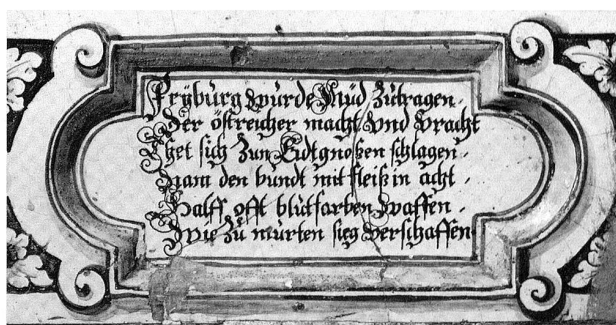 Fryburg wurde Müd Zutragen.
Der östreicher macht Vnd Pracht
Thet sich Zun Eidtgnoßen schlagen.
Nam den bundt mit fleiß in acht.
Halff offt blutfarben Waffen.
Wie Zu murten sieg Verschaffen